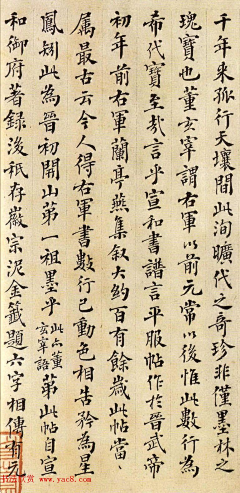 千年来孤行天壤間此洵曠代之奇珍非僅墨林之
瑰寶也董玄宰謂右軍以前元常以後惟此數行為
希代寶至哉言乎宣和書譜言平服帖作於晉武帝
初年前右軍蘭亭燕集叙大約百有餘歲此帖當
属最古云今人得右軍書數行已動色相告矜為星
鳳矧此為晉初開山第一祖墨乎此亦董玄宰語第此帖自宣
和御府著録後秖存徽宗泥金籤題六字相傳有元
书法欣赏 www.yac8.com